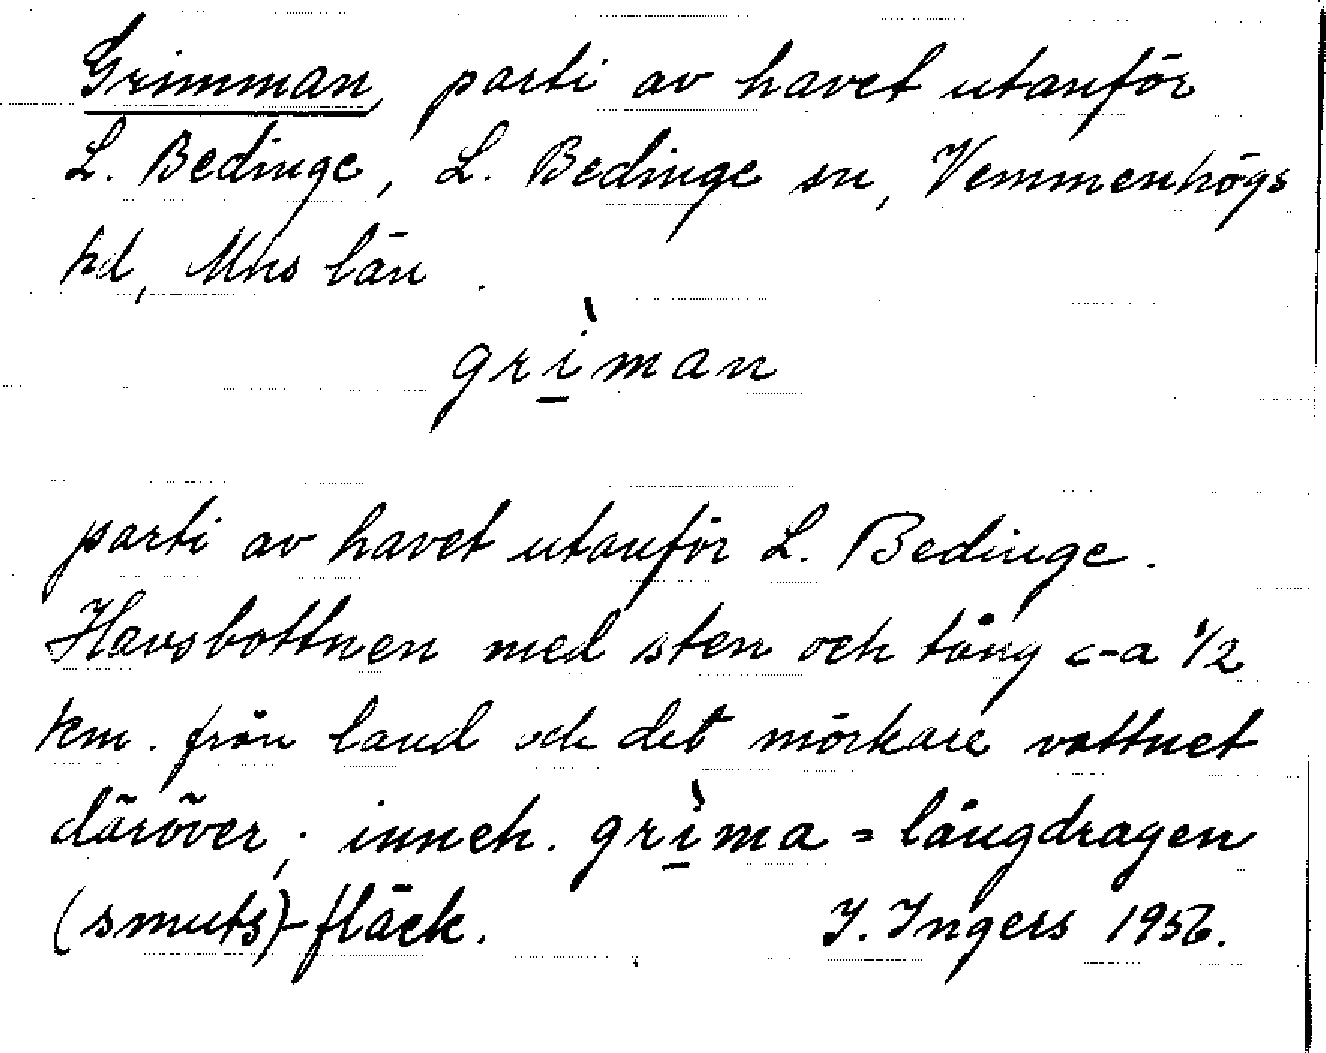 Grimman, parti av havet utanför
L. Bedinge, L. Bedinge sn, Vemmenhögs
hd, Mhs län.
grì̱man
parti av havet utanför L. Bedinge.
Havsbottnen med sten och tång c-a 1/2
km. från land och det mörkare vattnet
däröver; inneh. grì̱ma = långdragen
(smuts)-fläck. I. Ingers 1956.